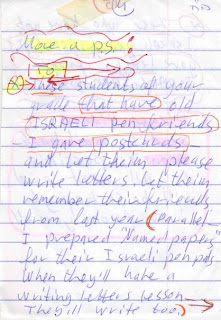 More a p.s.
To
These students of your
grade that have old
ISRAELI pen friends
I gave postcards
and let theim please
write letters let theim
remember their friends
from last year (parallel
I prepared "Named papers"
for their Israeli pen pals
When they'll have a
writing letters lesson
They'll write too.)